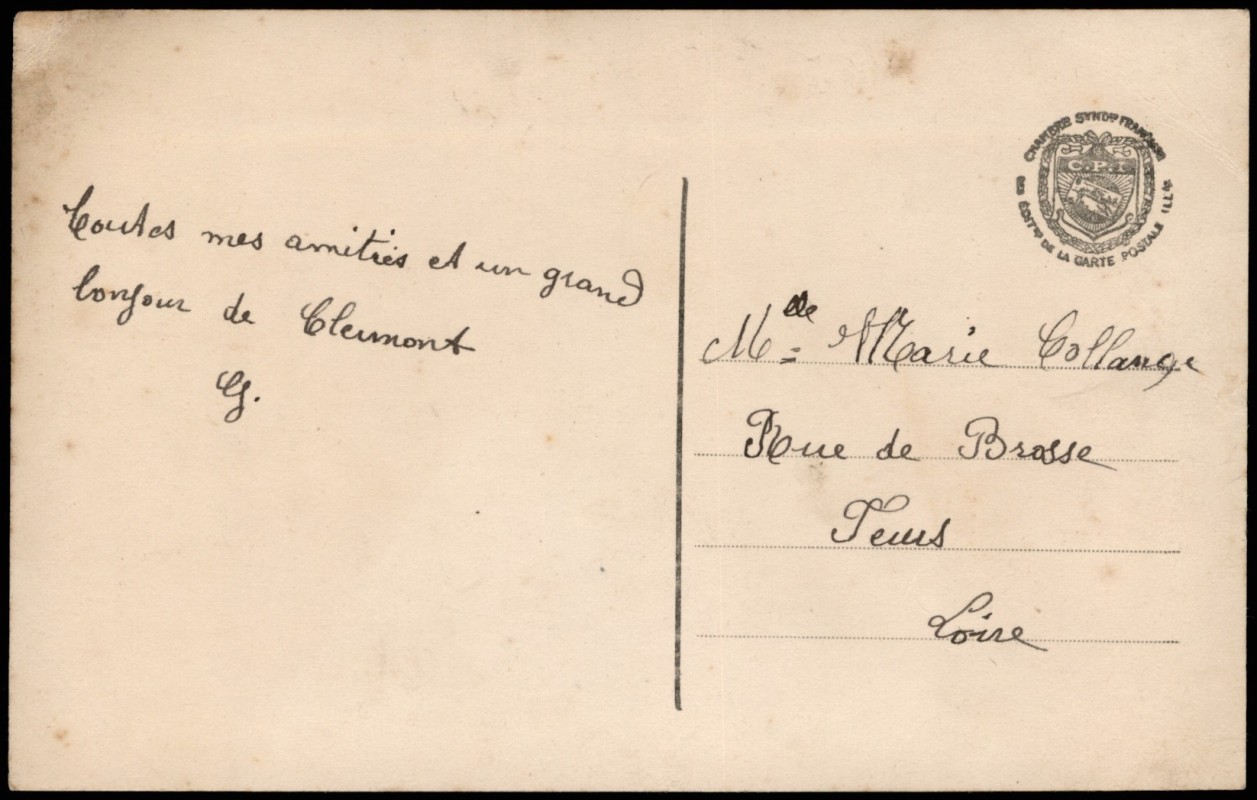 Toutes mes amitiés et un grand
bonjour de Clermont
G.
CHAMBRE SYND^le FRANÇAISE
DES ÉDIT^rs DE LA CARTE POSTALE ILL^ée
C.P.I.
M^elle Marie Collange
Rue de Brosse
Feurs
Loire